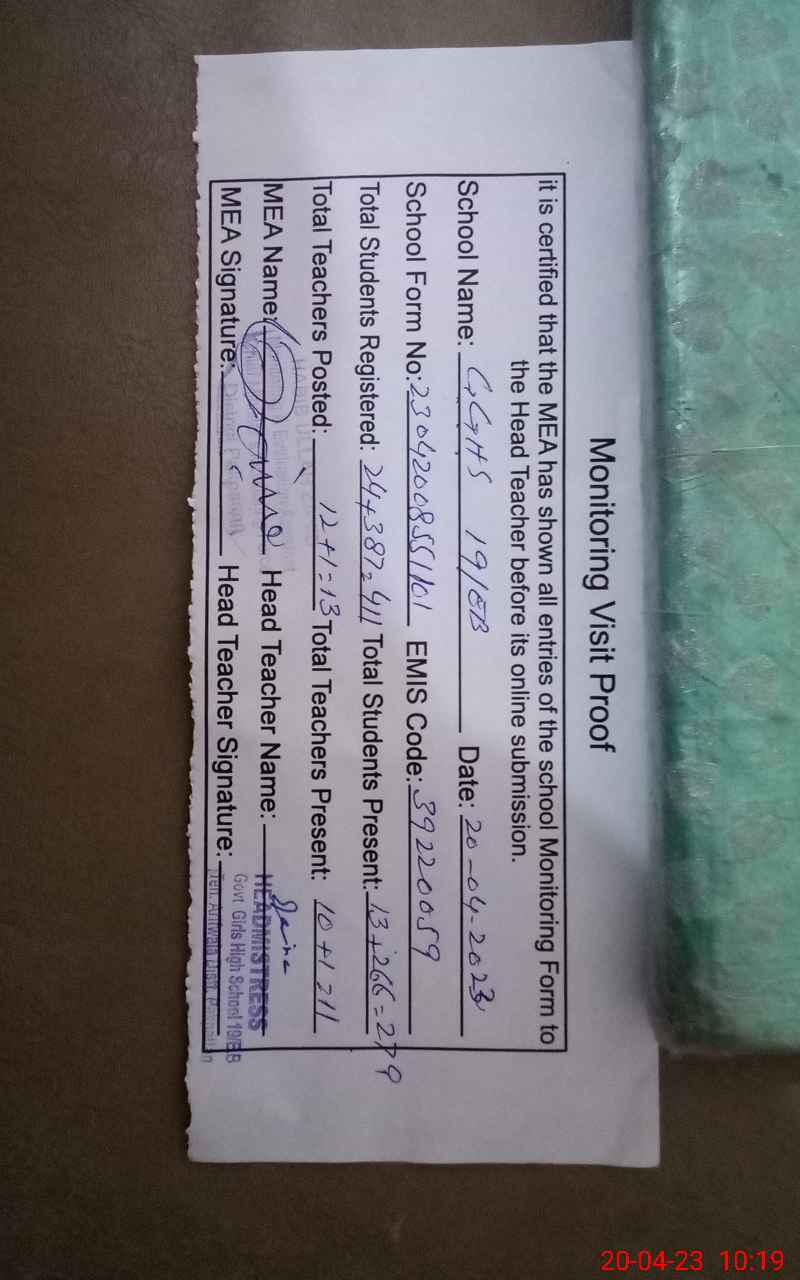 Monitoring Visit Proof
it is certified that the MEA has shown all entries of the school Monitoring Form to
the Head Teacher before its online submission.
School Name: GGHS 19/EB Date: 20-04-2023
School Form No: 2304200855 EMIS Code: 39220059
Total Students Registered: 24+387=411 Total Students Present: 13+266=279
Total Teachers Posted: 12+1=13 Total Teachers Present: 10+1=11
MEA Name: Head Teacher Name:
HEADMISTRESS
MEA Signature: Head Teacher Signature:
Govt Girls High School 19/EB
20-04-23 10:19